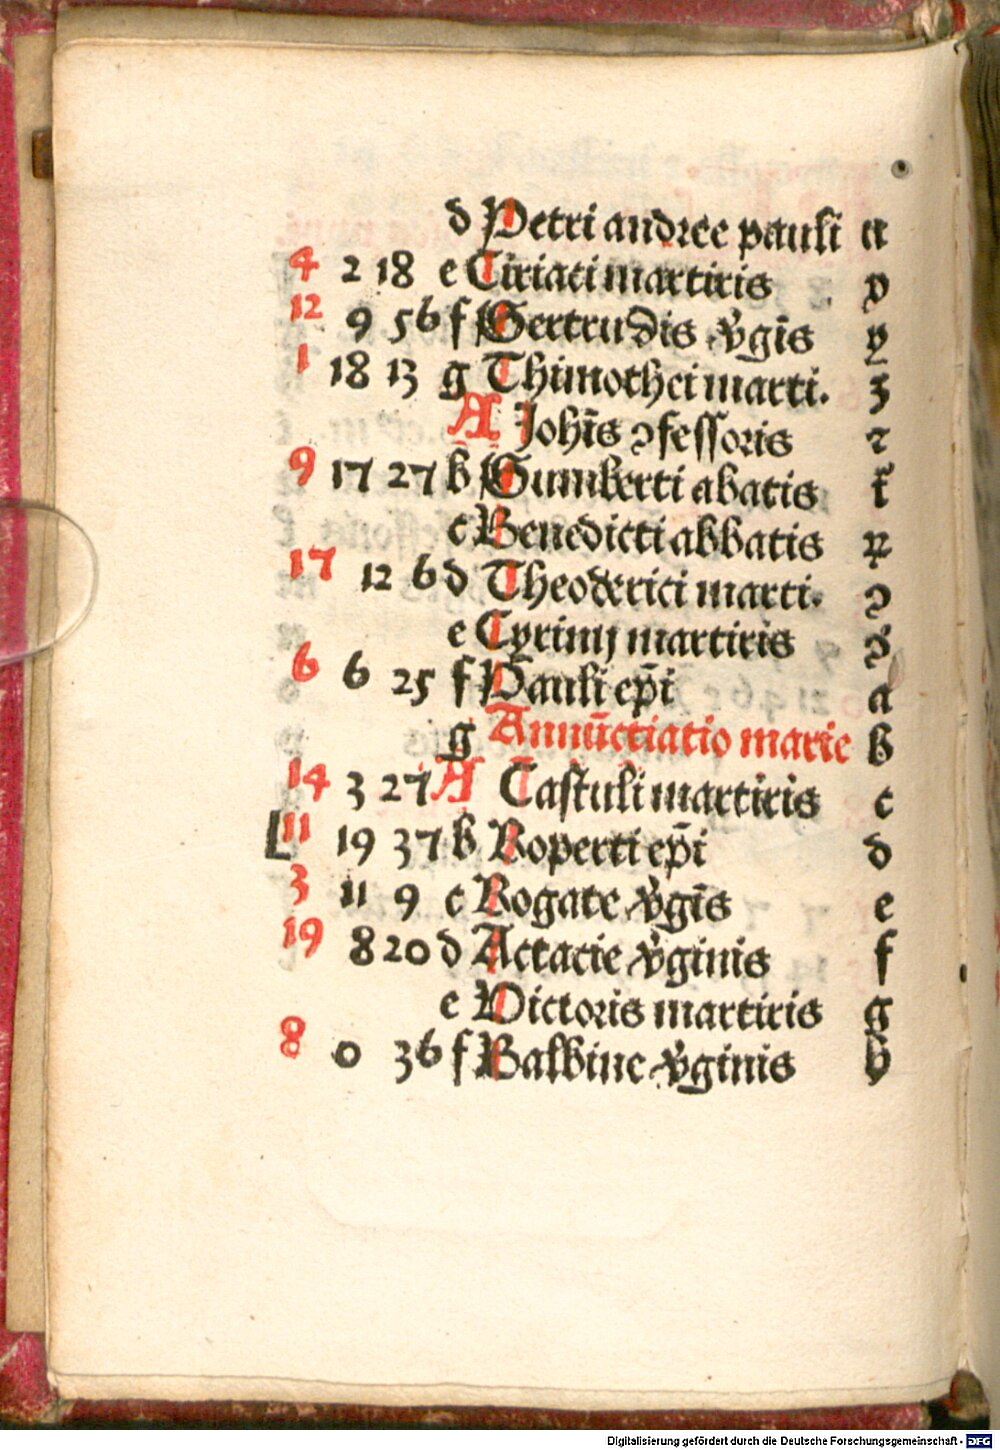 d Petri andree pauli u
4 2 18 e Ciriaci martiris x
12 9 56 f Gertrudis v̄gīs y
1 18 13 g Thimothei marti. z
A Johīs ꝯfessoris ꝛ
9 17 27 b Gumberti abatis
c Benedicti abbatis
17 12 6 d Theoderici marti. ꝯ
e Cyrinij martiris
6 6 25 f Pauli ep̄i a
g Annūctiatio marie b
14 3 27 A Castuli martiris c
11 19 37 b Roperti ep̄i d
3 11 9 c Rogate v̄gīs e
19 8 20 d Actacie v̄ginis f
e Victoris martiris g
8 0 36 f Balbine v̄ginis h
Digitalisierung gefördert durch die Deutsche Forschungsgemeinschaft - DFG